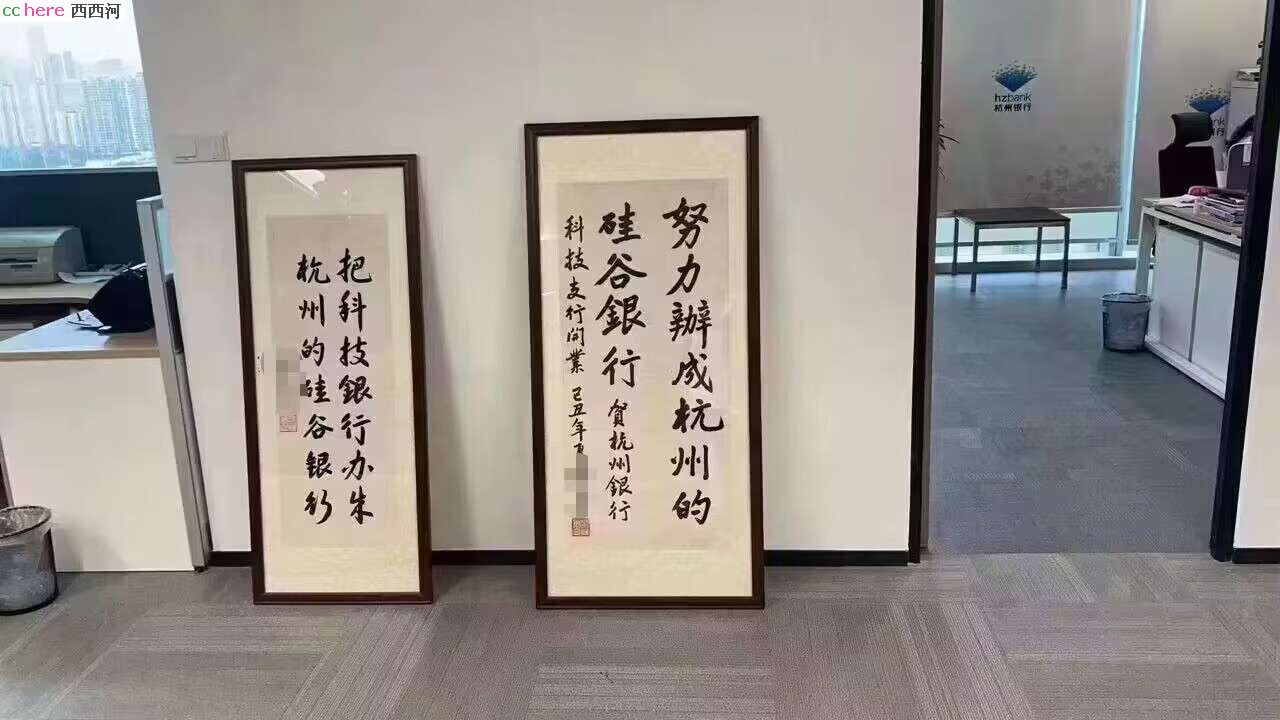 cchere 西西河
努力辦成杭州的
硅谷銀行 贺杭州銀行
科技支行开業 己丑年夏
把科技銀行办成
杭州的硅谷银行
hzbank
杭州银行
hzbank